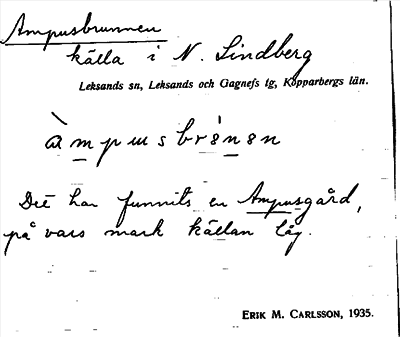 Ampusbrunnen
källa i N. Lindberg
Leksands sn, Leksands och Gagnefs tg, Kopparbergs län.
àmpusbrǿnøn
Det har funnits en Ampusgård,
på vars mark källan låg.
ERIK M. CARLSSON, 1935.